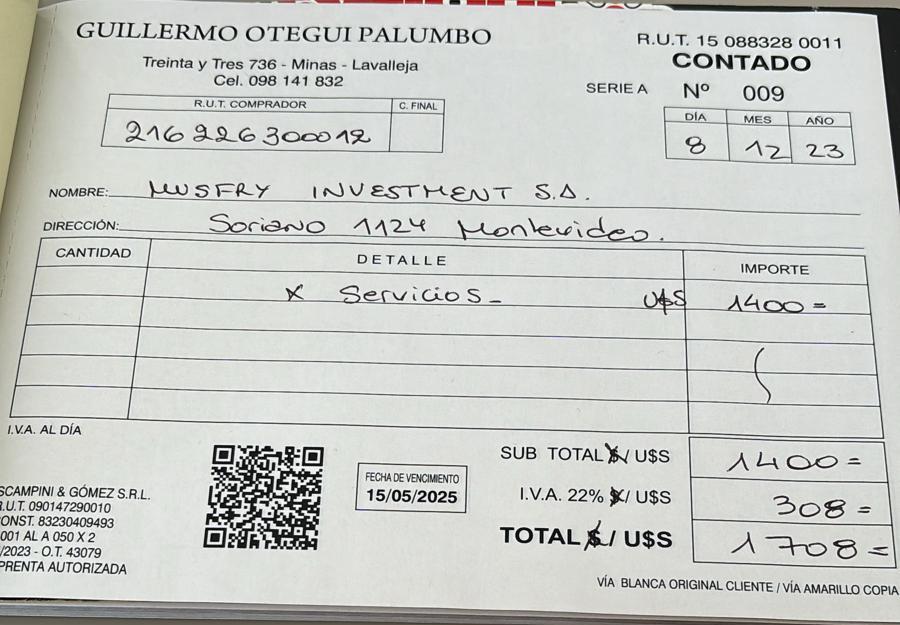 GUILLERMO OTEGUI PALUMBO
Treinta y Tres 736 - Minas - Lavalleja
Cel. 098 141 832
R.U.T. 15 088328 0011
CONTADO
SERIE A Nº 009
R.U.T. COMPRADOR C. FINAL
216226300012
DÍA MES AÑO
8 12 23
NOMBRE: MUSFRY INVESTMENT S.A.
DIRECCIÓN: Soriano 1124 Montevideo.
CANTIDAD DETALLE IMPORTE
x Servicios_ U$S 1400=
I.V.A. AL DÍA
SUB TOTAL $/ U$S 1400=
I.V.A. 22% $/ U$S 308=
TOTAL $/ U$S 1708=
FECHA DE VENCIMIENTO
15/05/2025
SCAMPINI & GÓMEZ S.R.L.
R.U.T. 090147290010
CONST. 83230409493
001 AL A 050 X 2
/2023 - O.T. 43079
PRENTA AUTORIZADA
VÍA BLANCA ORIGINAL CLIENTE / VÍA AMARILLO COPIA